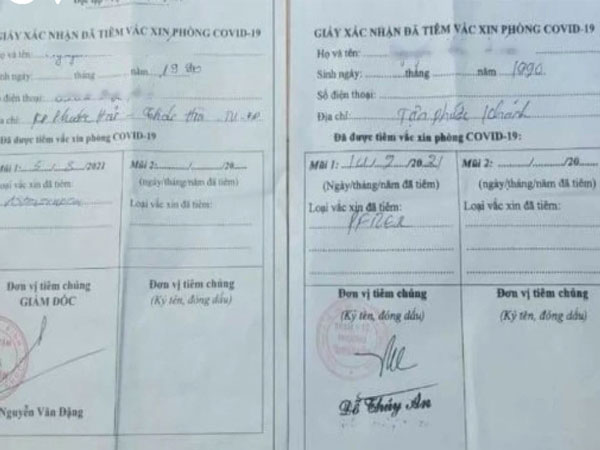 GIẤY XÁC NHẬN ĐÃ TIÊM VẮC XIN PHÒNG COVID-19
Họ và tên:
Sinh ngày: tháng năm 19
Số điện thoại:
chỉ:
Đã được tiêm vắc xin phòng COVID-19
Mũi 1: 5/8/2021
Mũi 2: ......./......./20......
(ngày/tháng/năm đã tiêm)
(ngày/tháng/năm đã tiêm)
Loại vắc xin đã tiêm:
Loại vắc xin đã tiêm:
Đơn vị tiêm chủng
GIÁM ĐỐC
Đơn vị tiêm chủng
(Ký tên, đóng dấu)
Nguyễn Văn Đặng
GIẤY XÁC NHẬN ĐÃ TIÊM VẮC XIN PHÒNG COVID-19
Họ và tên:
Sinh ngày: tháng năm 1990
Số điện thoại:
Địa chỉ: Tân Phước Khánh
Đã được tiêm vắc xin phòng COVID-19:
Mũi 1: 14/7/2021
Mũi 2: ......./......./20......
(Ngày/tháng/năm đã tiêm)
(ngày/tháng/năm đã tiêm)
Loại vắc xin đã tiêm:
Loại vắc xin đã tiêm:
Đơn vị tiêm chủng
(Ký tên, đóng dấu)
Đơn vị tiêm chủng
(Ký tên, đóng dấu)
Thúy An